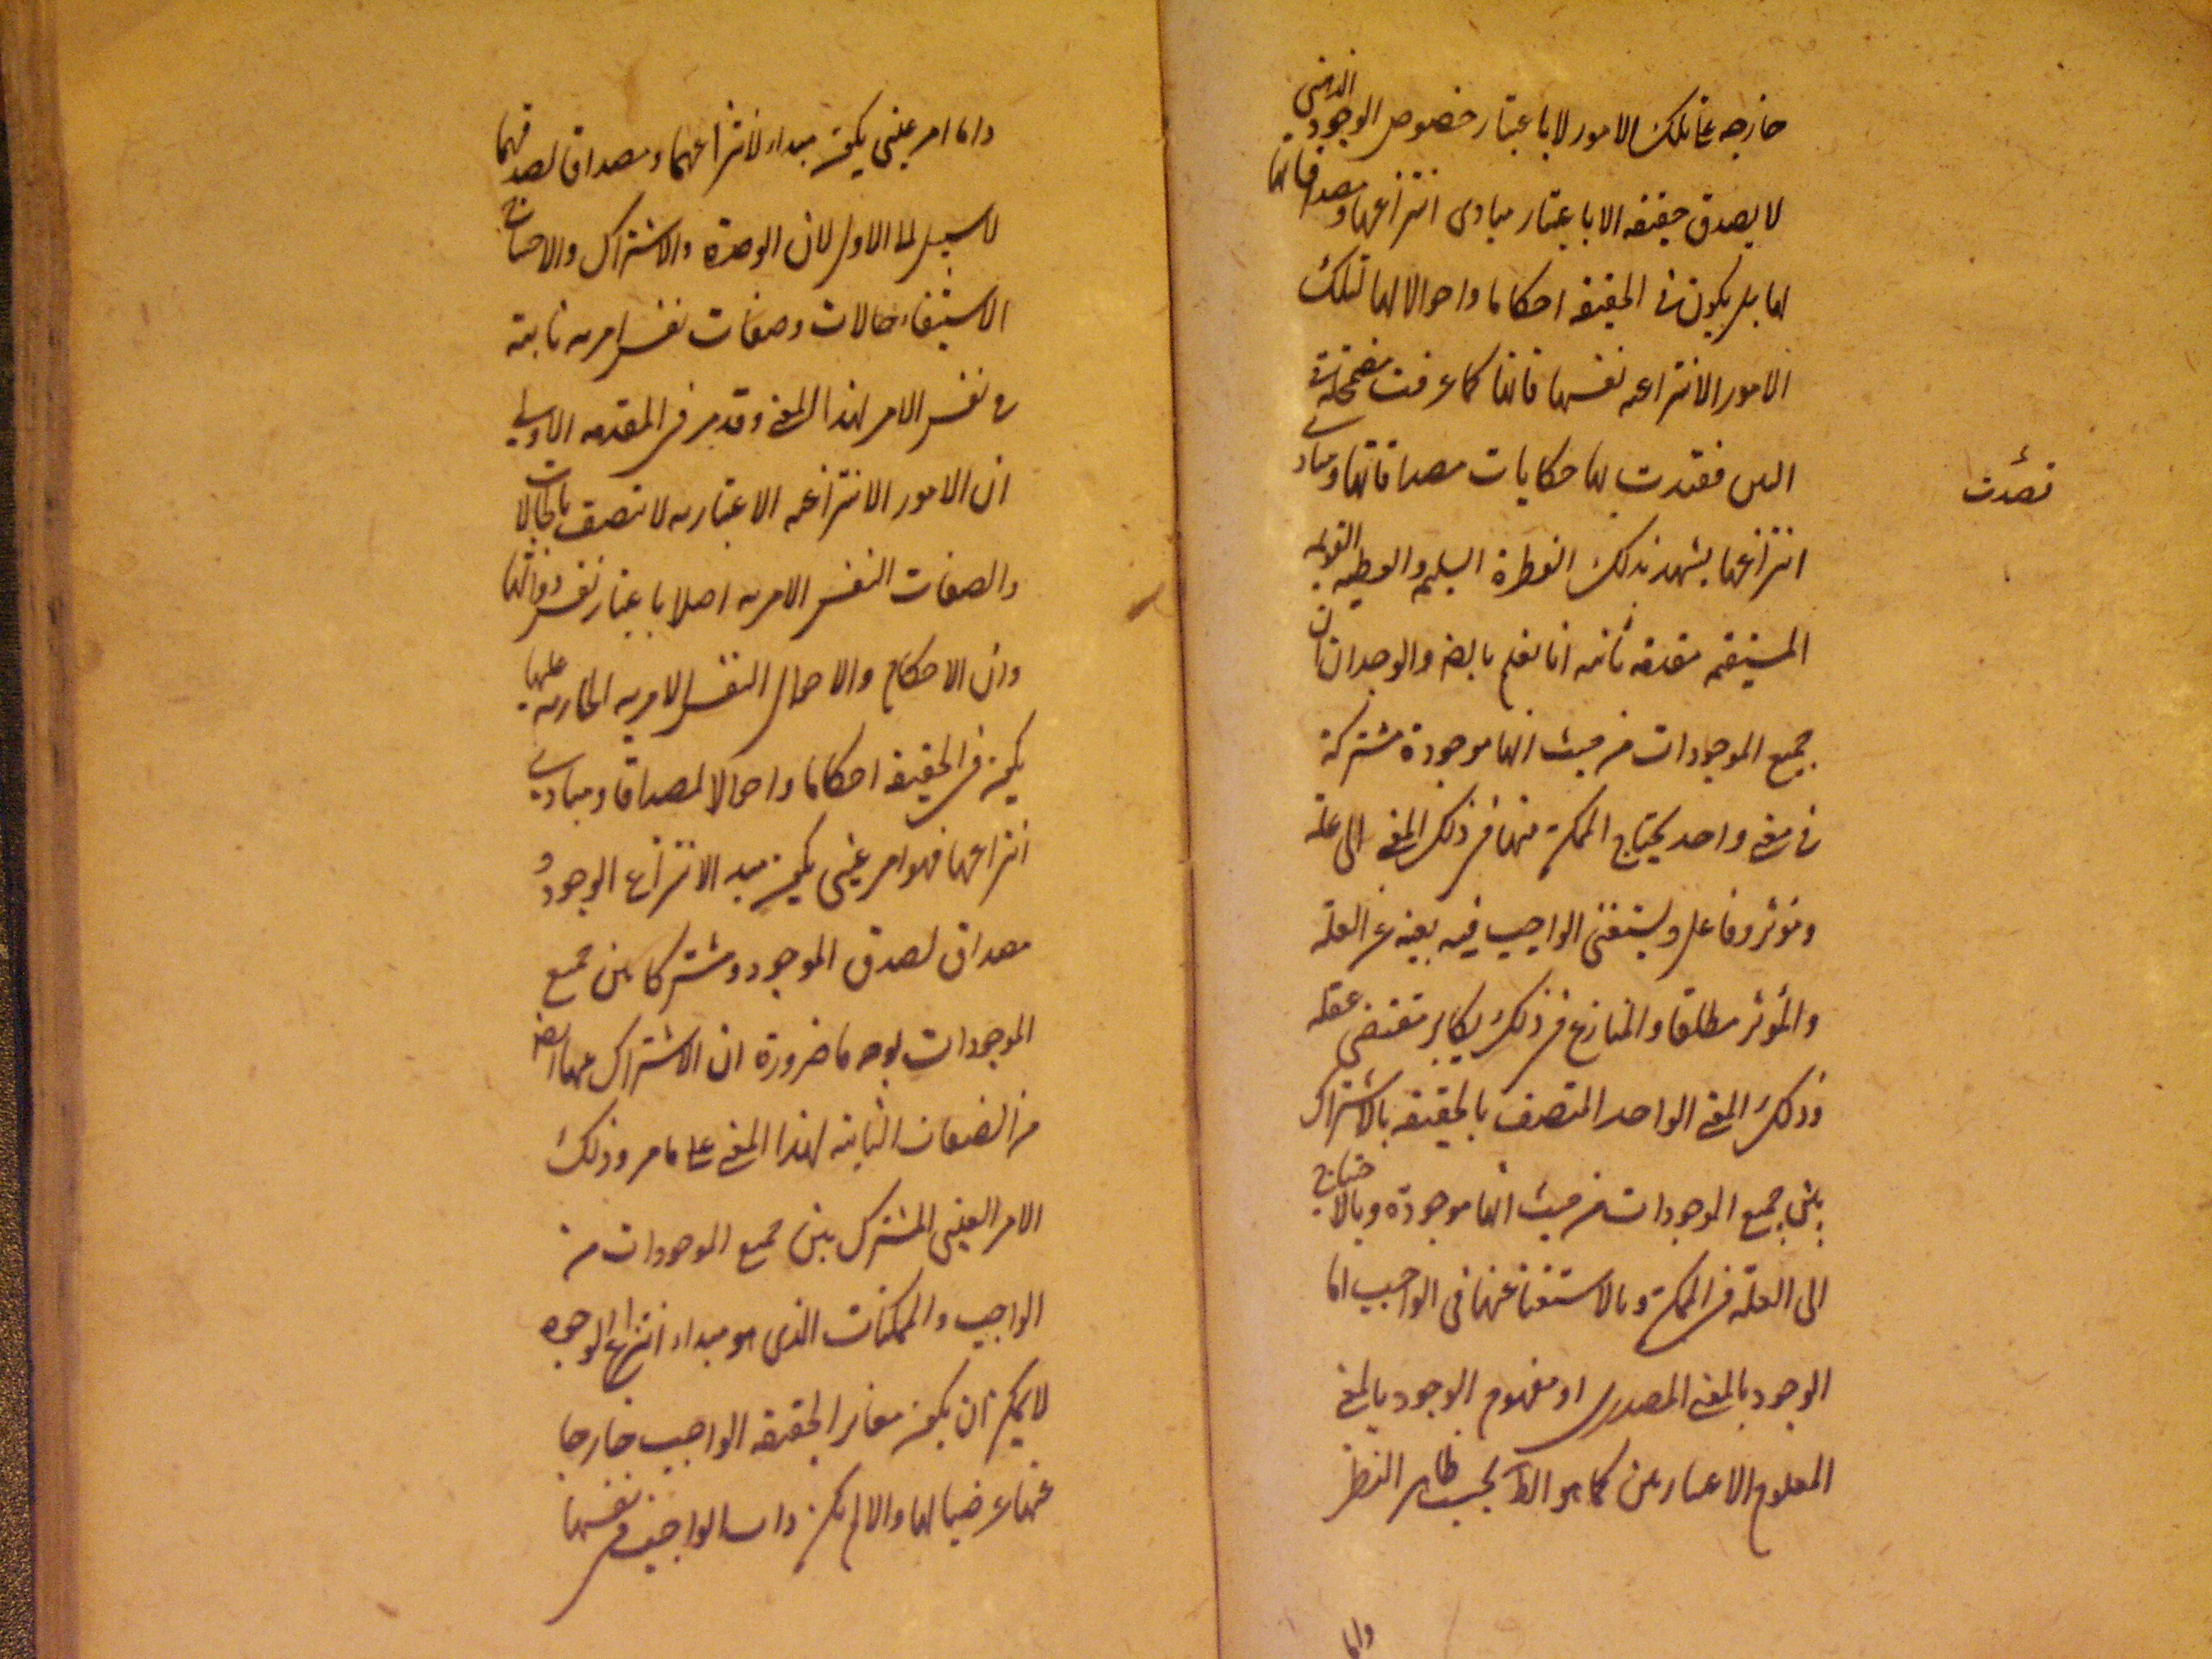 خارجه عن تلك الامور لا باعتبار خصوص الوجود الذهني
لا يصدق حقيقه الا باعتبار مبادى انتزاعها ومصداقاتها
لها بل يكون فى الحقيقه احكاما واحوالا لها لتلك
الامور الانتزاعيه نفسها فانها كما عرفت مضمحلة فى
فقدت لها حكايات مصداقاتها ومبادى
انتزاعها يشهد بذلك الفطرة السليمه والفطنه القويمه
المستقيمه مقدمه ثانيه انا نعلم بالضرورة والوجدان ان
جميع الموجودات من حيث انها موجودة مشتركة
فى معنى واحد يحتاج الممكن منها فى ذلك المعنى الى علة
وموثر وفاعل ويستغنى الواجب فيه بعينه عن العلة
والمؤثر مطلقا والمنازع فى ذلك يكابر مقتضى عقله
وذلك المعنى الواحد المتصف بالحقيقه بالاشتراك
بين جميع الموجودات من حيث انها موجودة وبالاحتياج
الى العلة فى الممكن وبالاستغناء عنها فى الواجب اما
الوجود بالمعنى المصدرى او مفهوم الوجود بالمعنى
المعلوم الاعتباريين كما هو الظ بحسب ظاهر النظر
واما
واما امر عينى يكون مبداء لانتزاعهما ومصداق لصدقهما
لا سبيل الى الاول لان الوحدة والاشتراك والاحتياج
الاستغناء حالات وصفات نفس امريه ثابتة
فى نفس الامر لهذا المعنى وقد مر فى المقدمه الاولى
ان الامور الانتزاعيه الاعتباريه لا تتصف بالحالات
والصفات النفس الامريه اصلا باعتبار نفس ذواتها
وان الاحكام والاحوال النفس الامريه الجاريه عليها
يكون فى الحقيقه احكاما واحوالا لمصداقا ومبادى
انتزاعها فهو امر عينى يكون مبدء الانتزاع الوجود و
مصداق لصدق الموجود ومشتركا بين جميع
الموجودات بوجه ما ضرورة ان الاشتراك ايضا
من الصفات الثابتة لهذا المعنى على ما مر وذلك
الامر العينى المشترك بين جميع الموجودات من
الواجب والممكنات الذى هو مبداء انتزاع الوجود
لا يمكن ان يكون مغاير الحقيقه الواجب خارجا
عنها عرضيا لها والا لم يكن ذات الواجب فى نفسها